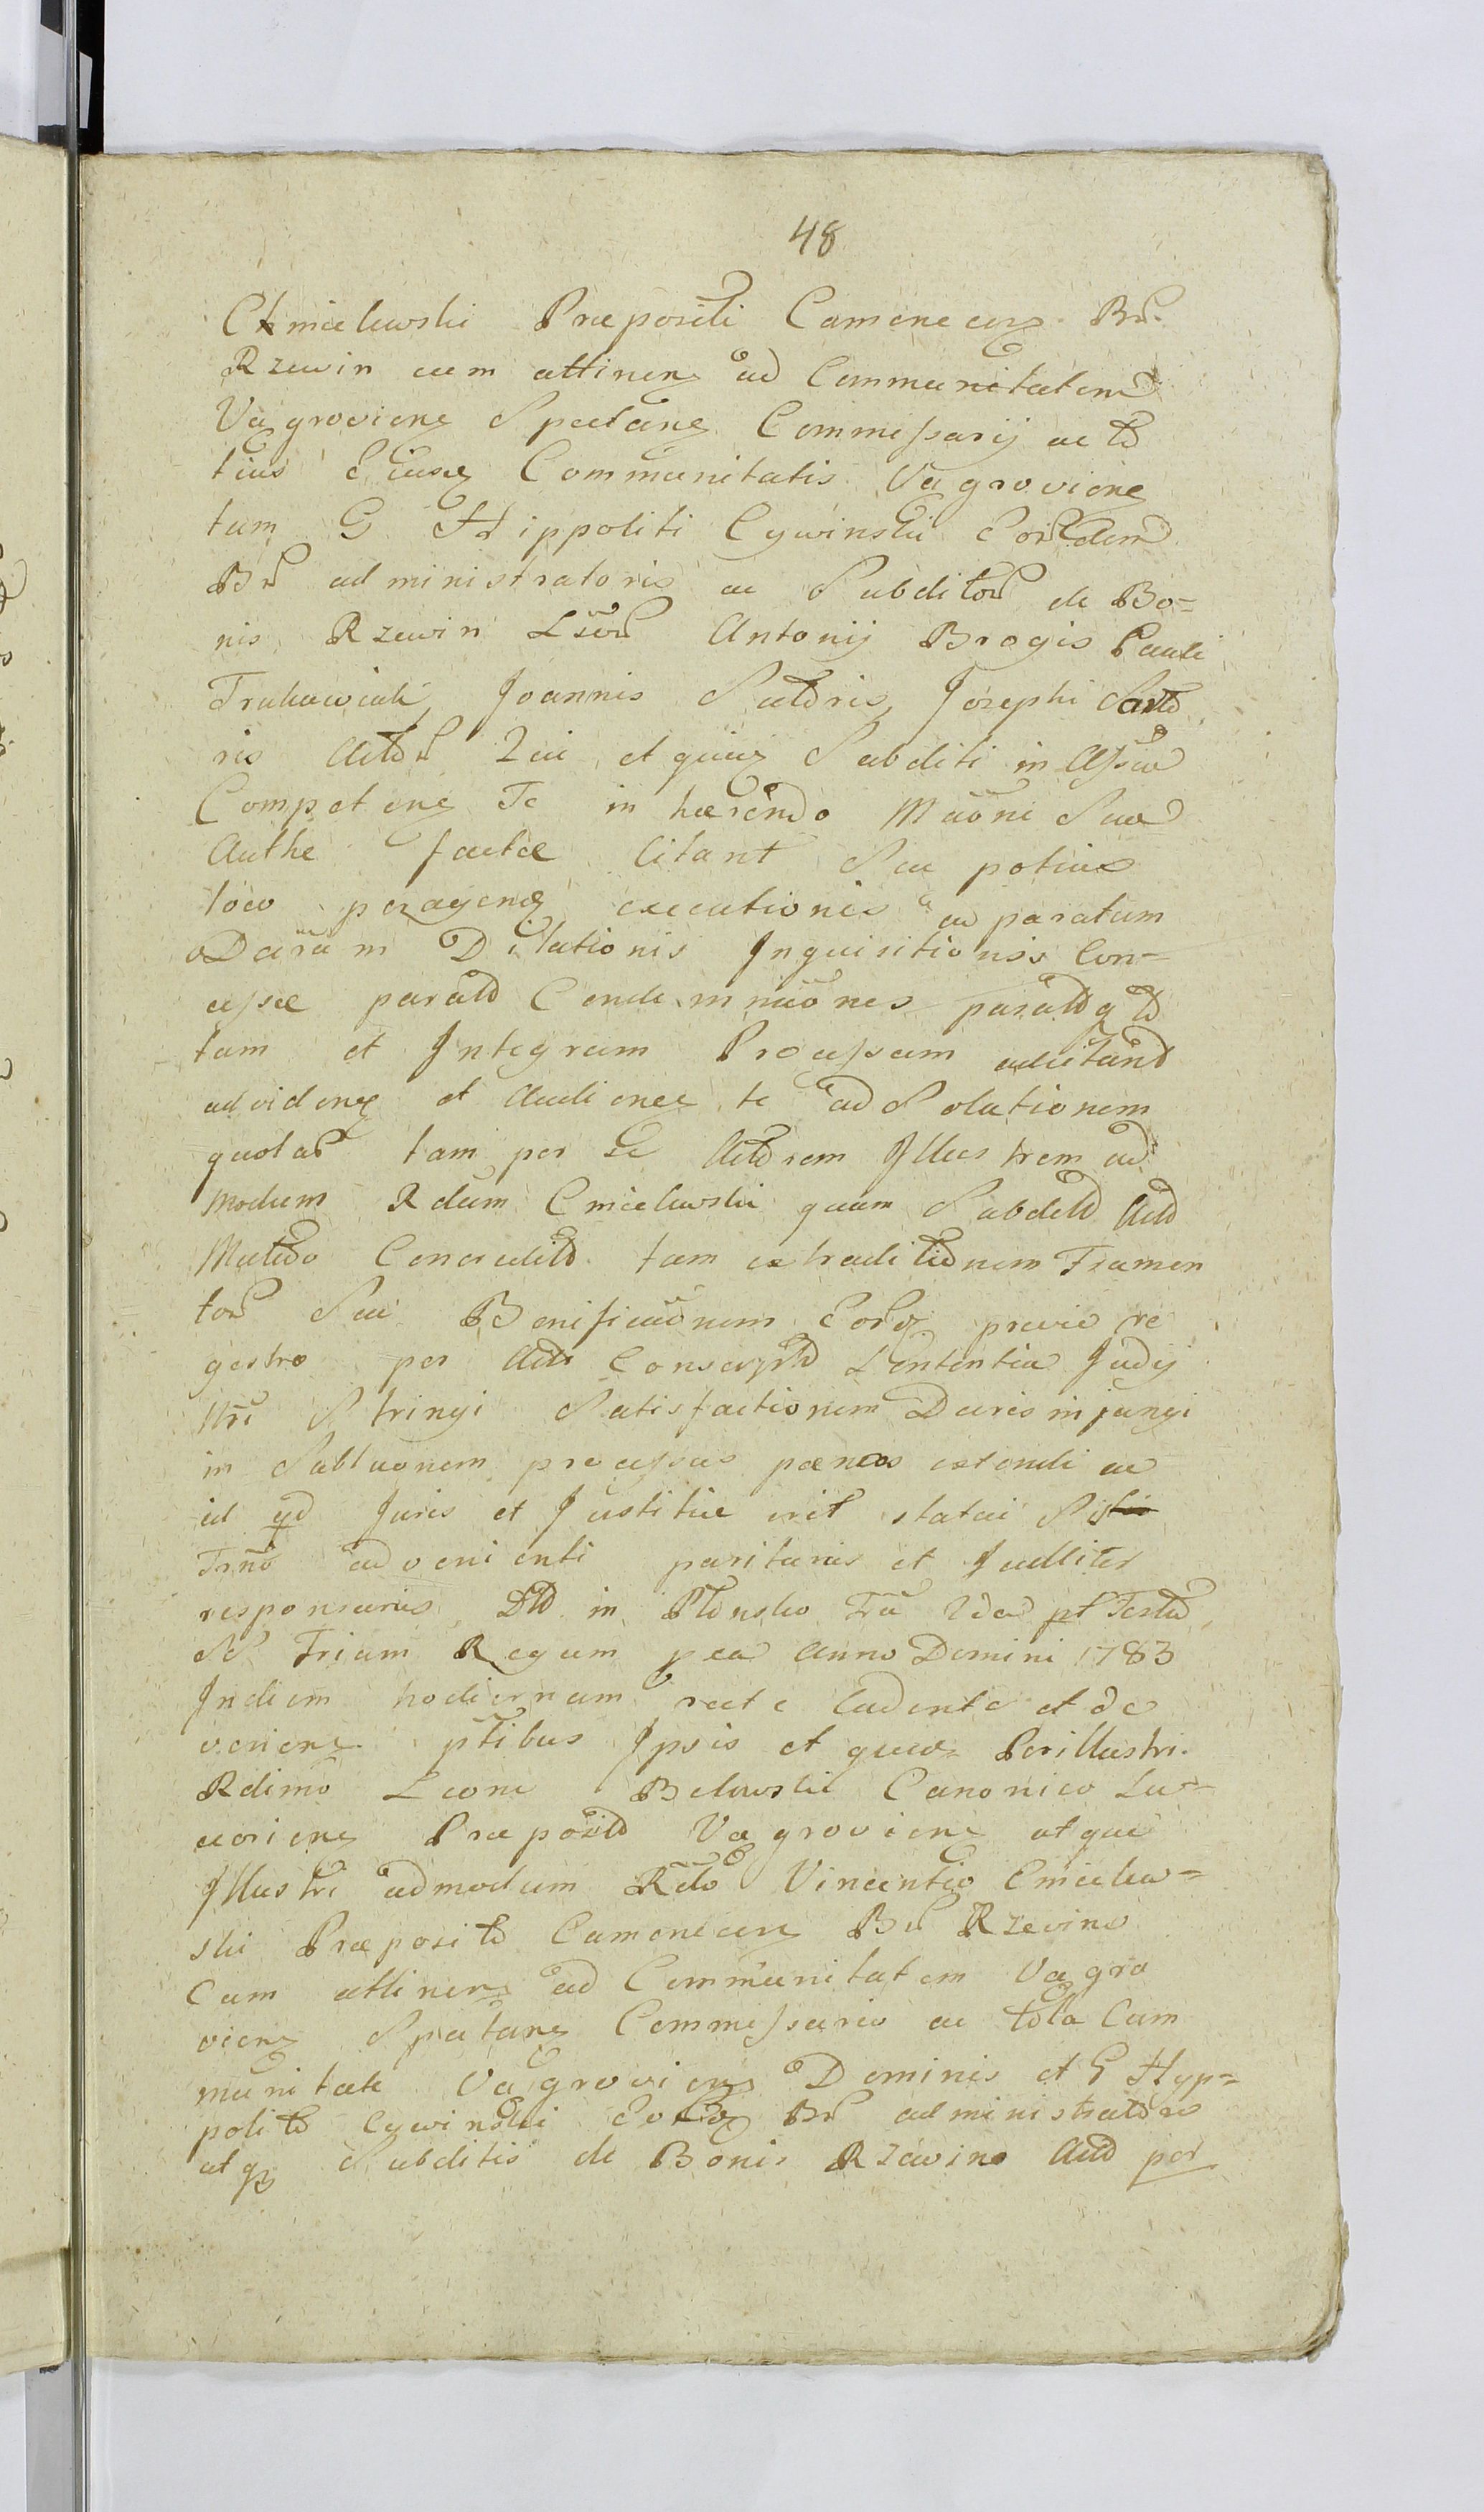 48
Chmielewski Præpositi Camenecens Brũ
Rzewin cum attinens ad Communitatem
Vagroviens Spectans Commissarij ac to
tius Ejusq Communitatis Vagroviens
tum G Hippoliti Cywinski Eorũdem
Brũ administratoris ac Subditorũ de Bo=
nis Rzewin Antonij Brogis Pauli
Joannis Sutoris, Josephi Sarto
ris Actorũ Qui et quiq Subditi in Assa
Competens Te in hærendo Mãoni Suæ
Authe factæ Citant Seu potius
loco peragens executionis ad paratum
Dilationis Inquisitionis Con=
cessæ parato Condemnãones
tum et Integrum Processum
ad videns et Audiens te ad Solutionem
quotarũ tam per Te Actorem Illustrem ad
modum Rdum Cmielewski quam Subdito Acto
Mutuo Concredito tum extraditionem Frumen
torũ Seu Benificãonem Eorq previo re
gestro per Acto Conscripto Sententia Judij
Nrĩ Stringi Satisfactionem Dari injungi
in Sublãonem processus pænas extendi ac
id qd Juris et Justitiæ erit statui
Trnõ advenienti pariturus et Judliter
responsurus Dto in Plonsko Fria 2da pt Festũ
SS Trium Regum pxa Anno Domini 1783
Indiem hodiernam recte Cadente et de
veniens ptibus Ipsis et quidem Perillustri
Rdimo Leone Belewski Canonico Lu=
ceoriens Præposito Vagroviens atque
Illustri admodum Rdo Vincentio Cmielew=
ski Præposito Camenecens Brũ Rzewino
Cum attinens ad Communitatem Vagro
viens Spectans Commissario ac tota Com
munitate Vagroviens Dominis et G Hyp=
polito Cywinski Eorq Brũ administratore
atq Subditis de Bonis Rzewino Acto per